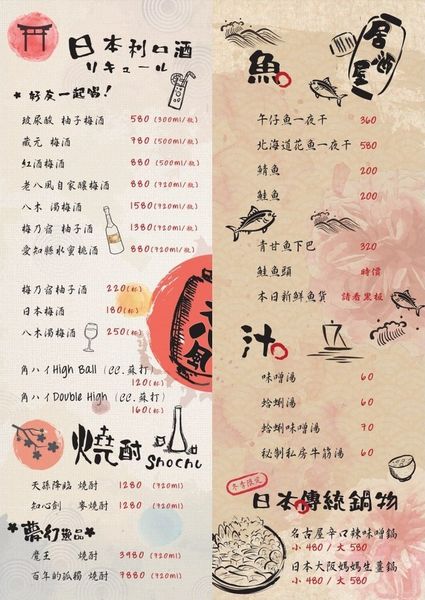 日本利口酒
リキュール
好友一起唱!
玻尿酸 柚子梅酒 580 (300ml/瓶)
藏元 梅酒 980 (500ml/瓶)
紅酒梅酒 880 (500ml/瓶)
老八風自家釀梅酒 880 (720ml/瓶)
八木 濁梅酒 1580 (720ml/瓶)
梅乃宿 柚子酒 1380 (720ml/瓶)
愛知縣水蜜桃酒 880 (720ml/瓶)
梅乃宿柚子酒 220(杯)
日本梅酒 180(杯)
八木濁梅酒 250(杯)
角ハイHigh Ball (cc.蘇打)
120(杯)
角ハイDouble High (cc.蘇打)
160(杯)
燒酎 Shochu
天孫降臨 燒酎 1280 (720ml)
知心劍 麥燒酎 1280 (720ml)
夢幻逸品
魔王 燒酎 3980 (720ml)
百年的孤獨 燒酎 9880 (720ml)
居酒屋
魚
午仔魚一夜干 360
北海道花魚一夜干 580
鯖魚 200
鮭魚 200
青甘魚下巴 320
鮭魚頭 時價
本日新鮮魚貨 請看黑板
汁
味噌湯 60
蛤蜊湯 60
蛤蜊味噌湯 70
秘制私房牛筋湯 60
冬季限定
日本傳統鍋物
名古屋辛口辣味噌鍋
小 480 / 大 580
日本大阪媽媽生薑鍋
小 480 / 大 580